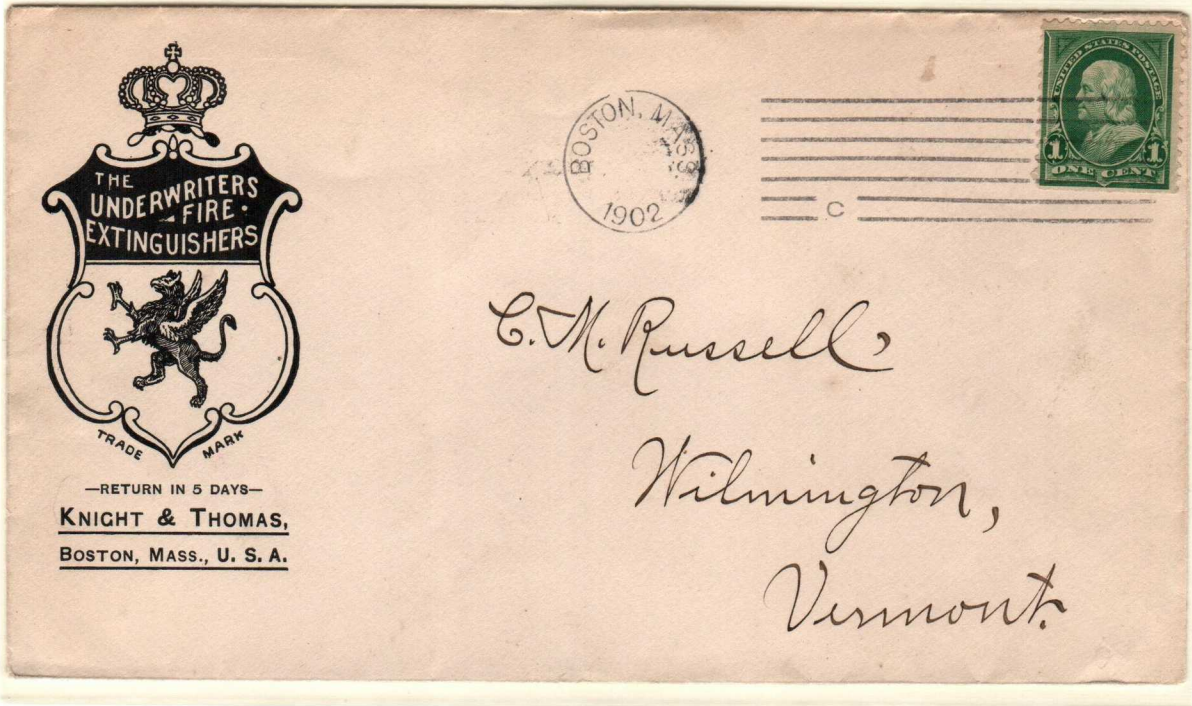 THE
UNDERWRITERS
FIRE.
EXTINGUISHERS
TRADE MARK
—RETURN IN 5 DAYS—
KNIGHT & THOMAS,
BOSTON, MASS., U. S. A.
BOSTON, MASS
1902
C
UNITED STATES POSTAGE
1 1
ONE CENT
C. M. Russell,
Wilmington,
Vermont.